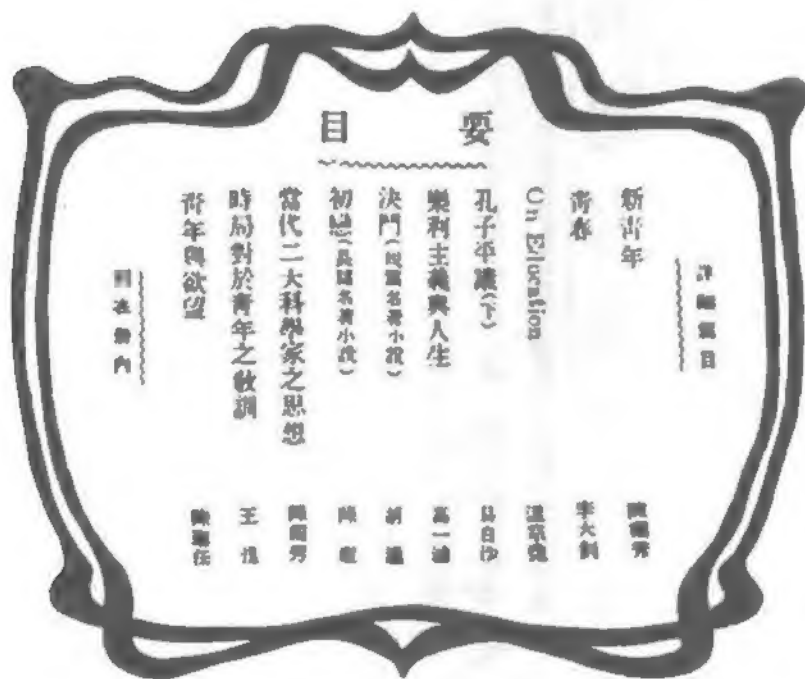 要目
詳細要目
新青年 陳獨秀
青春 李大釗
On Education 溫宗堯
孔子平議(下) 易白沙
樂利主義與人生 高一涵
決鬥(俄國名著小說) 胡適
初戀(俄國名著小說) 陳嘏
當代二大科學家之思想 陳獨秀
時局對於青年之敎訓 王涅
靑年與欲望 陳聖任
目表册內